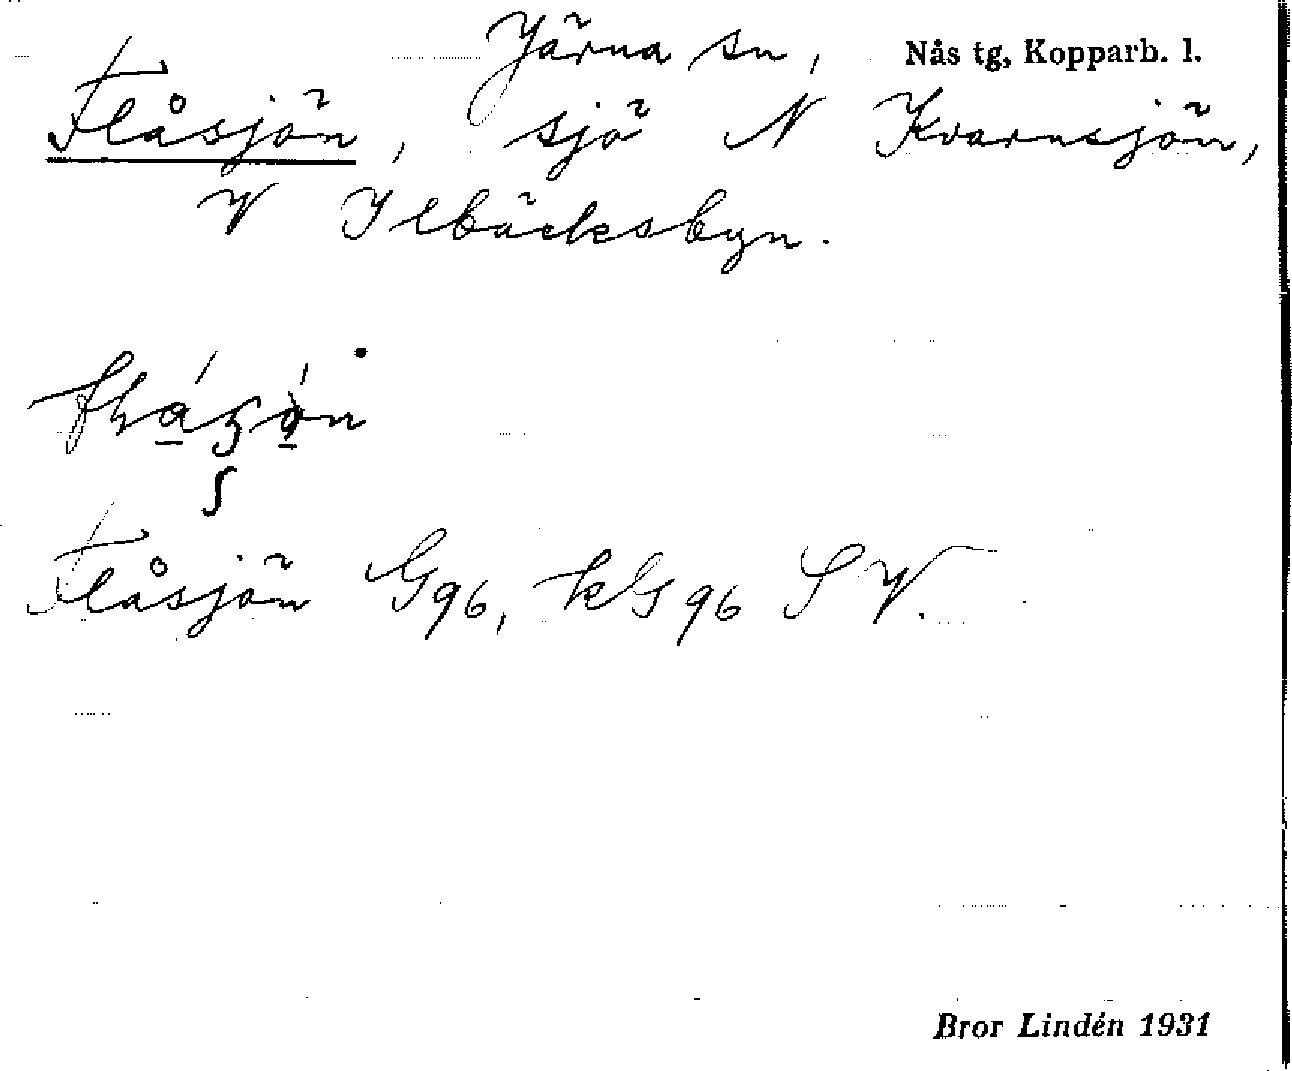 Järna sn, Nås tg, Kopparb. l.
Flåsjön, sjö N Kvarnsjön,
V Ilbäcksbyn.
Flåsjön G96, kG96 SV.
Bror Lindén 1931